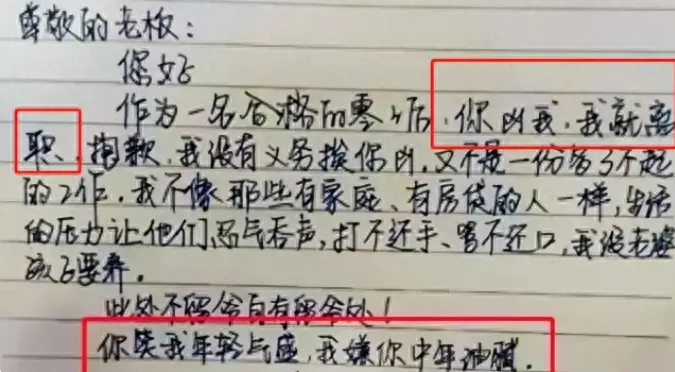 尊敬的老板：
你好
作为一名合格的零零后，你凶我，我就离
职，抱歉，我没有义务挨你凶，又不是一份多了不起
的工作，我不像那些有家庭、有房贷的人一样，生活
的压力让他们忍气吞声，打不还手、骂不还口，我没老婆
孩子要养。
此处不留爷自有留爷处！
你笑我年轻气盛，我嫌你中年油腻。